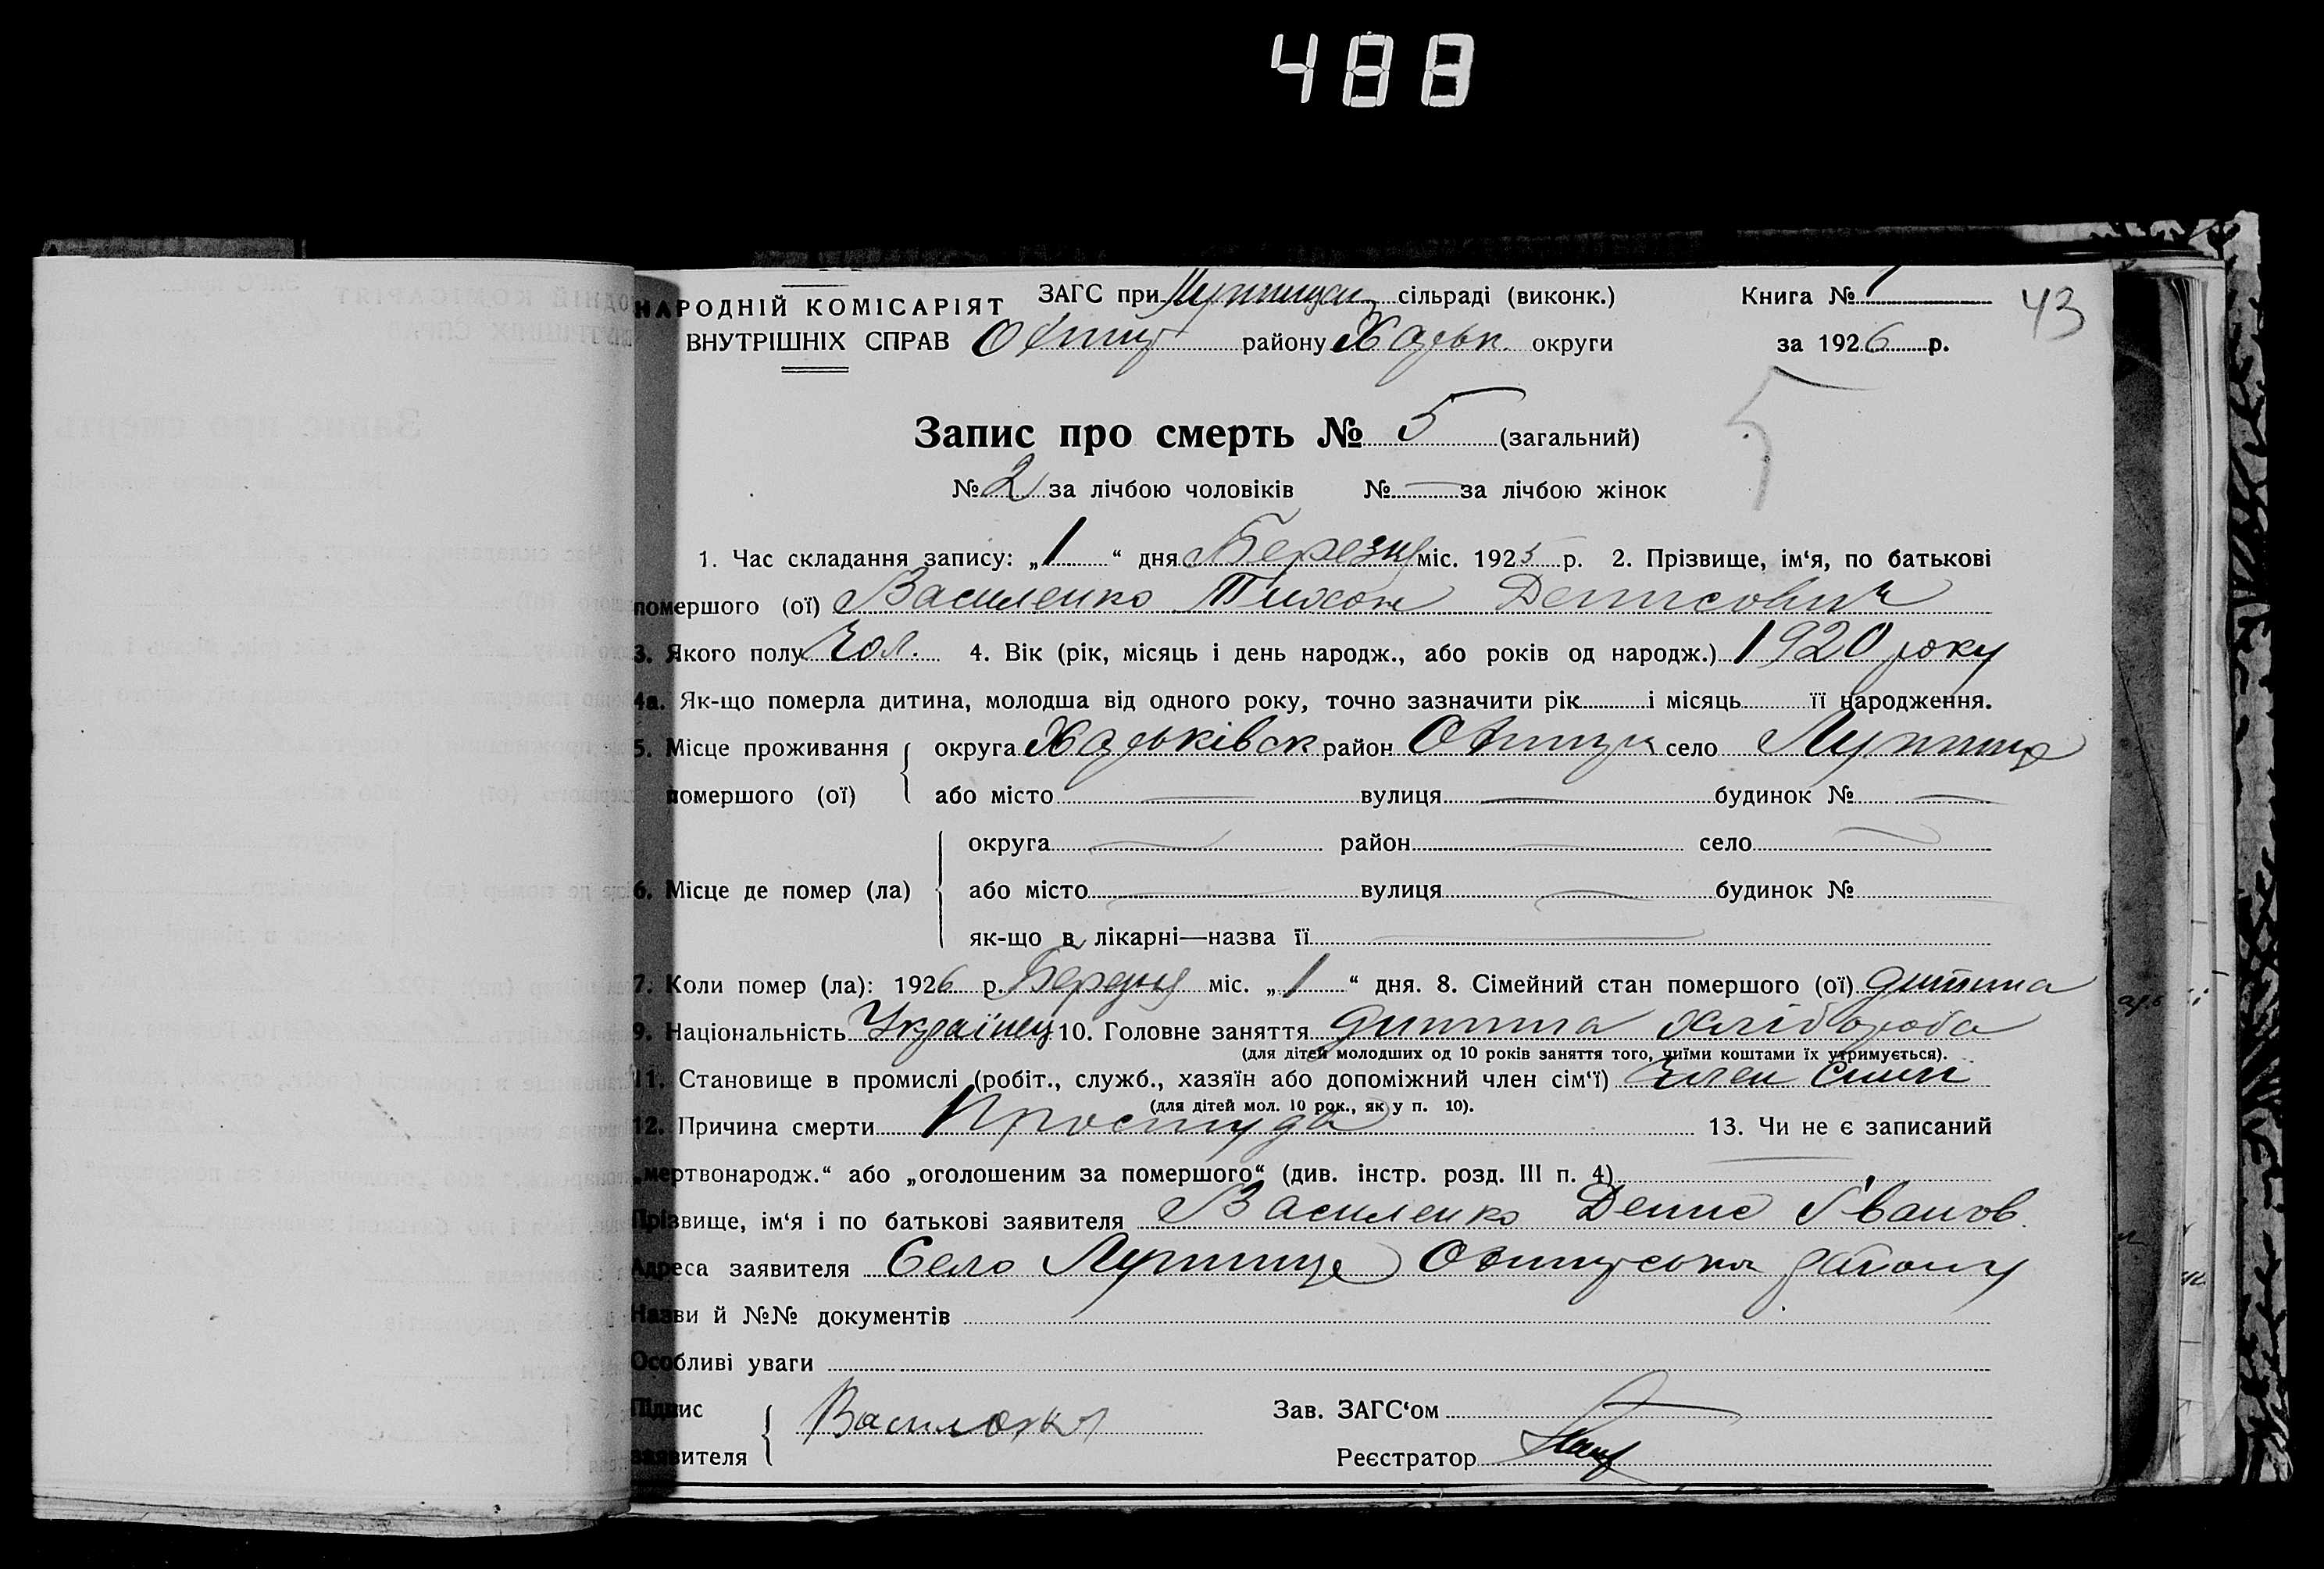 488
НАРОДНІЙ КОМІСАРІЯТ ЗАГС при сільраді (виконк.) Книга № 1 43
ВНУТРІШНІХ СПРАВ району Харьк. округи за 1926 р.
Запис про смерть № 5 (загальний) 5
№ 2 за лічбою чоловіків № — за лічбою жінок
1. Час складання запису: „1“ дня Березня міс. 1925 р. 2. Прізвище, ім‘я, по батькові
помершого (ої) Василенко Тихон Денисович
3. Якого полу Чол. 4. Вік (рік, місяць і день народж., або років од народж.) 1920 року
4а. Як-що померла дитина, молодша від одного року, точно зазначити рік і місяць її народження.
5. Місце проживання округа Харьківськ район село
помершого (ої) або місто — вулиця — будинок № —
округа — район — село —
6. Місце де помер (ла) або місто — вулиця — будинок №
як-що в лікарні—назва її —
7. Коли помер (ла): 1926 р. міс. „1“ дня. 8. Сімейний стан помершого (ої) дитина
9. Національність Українец 10. Головне заняття дитина хлібороба
(для дітей молодших од 10 років заняття того, чиїми коштами їх утримується).
11. Становище в промислі (робіт., служб., хазяїн або допоміжний член сім‘ї) Член сими
(для дітей мол. 10 рок., як у п. 10).
12. Причина смерти Простуда 13. Чи не є записаний
„мертвонародж.“ або „оголошеним за помершого“ (див. інстр. розд. III п. 4) —
Прізвище, ім‘я і по батькові заявителя Василенко Денис Іванов.
Адреса заявителя Село району
Назви й №№ документів
Особливі уваги
Підпис Зав. ЗАГС‘ом
заявителя Реєстратор